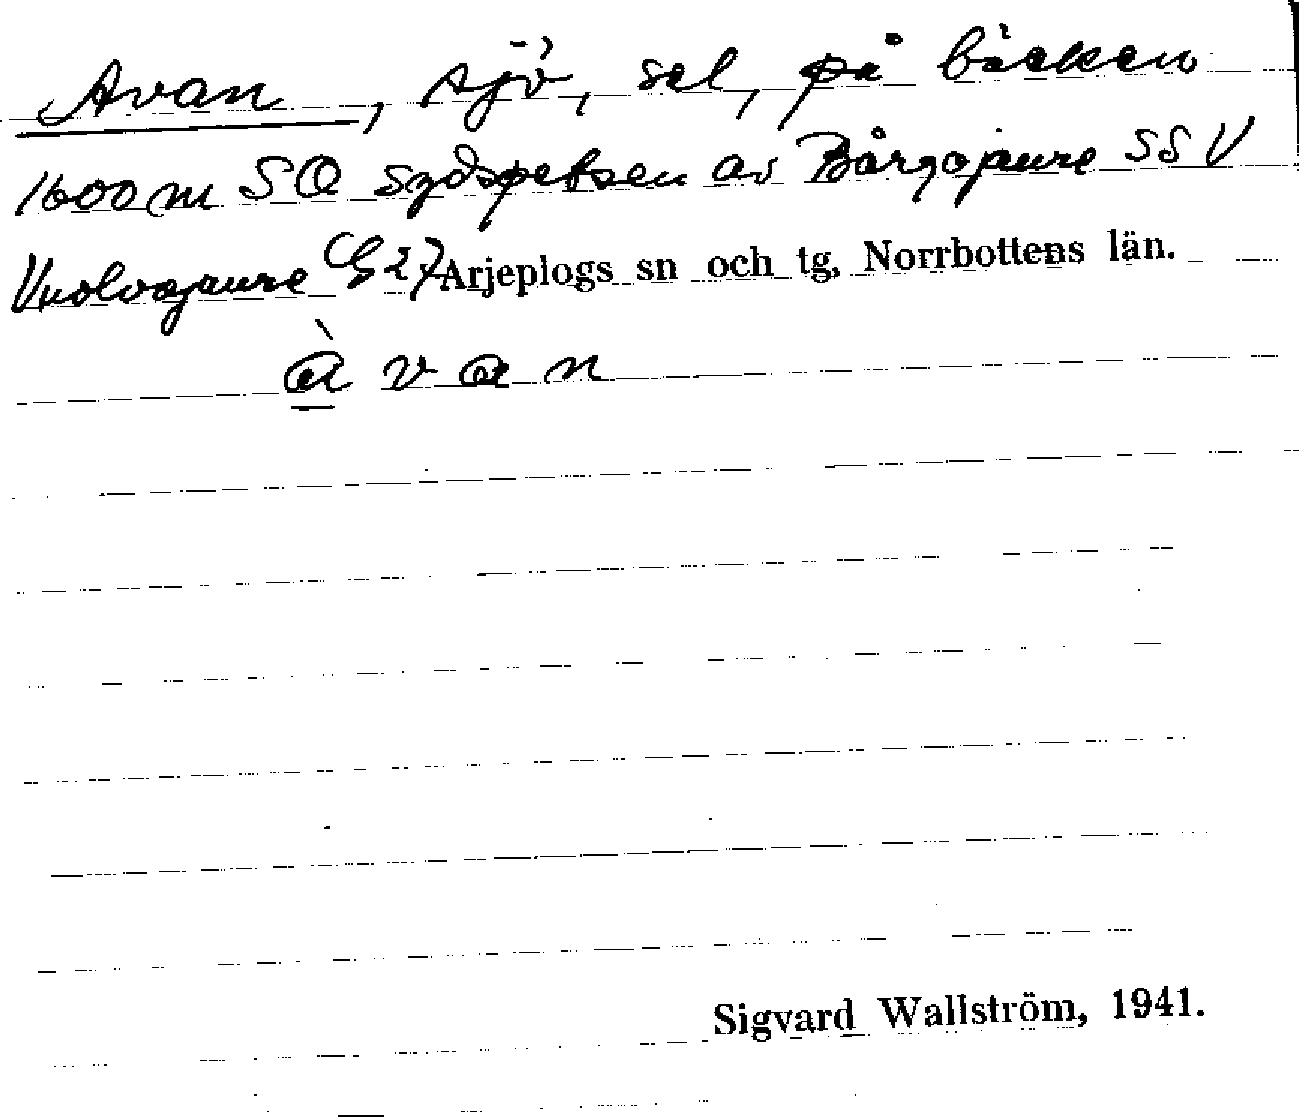 Avan, sjö, sel, på bäcken
1600 m SO sydspetsen av Bårgojaure SSV
Vuolvojaure G27 Arjeplogs sn och tg, Norrbottens län.
à v a n
Sigvard Wallström, 1941.